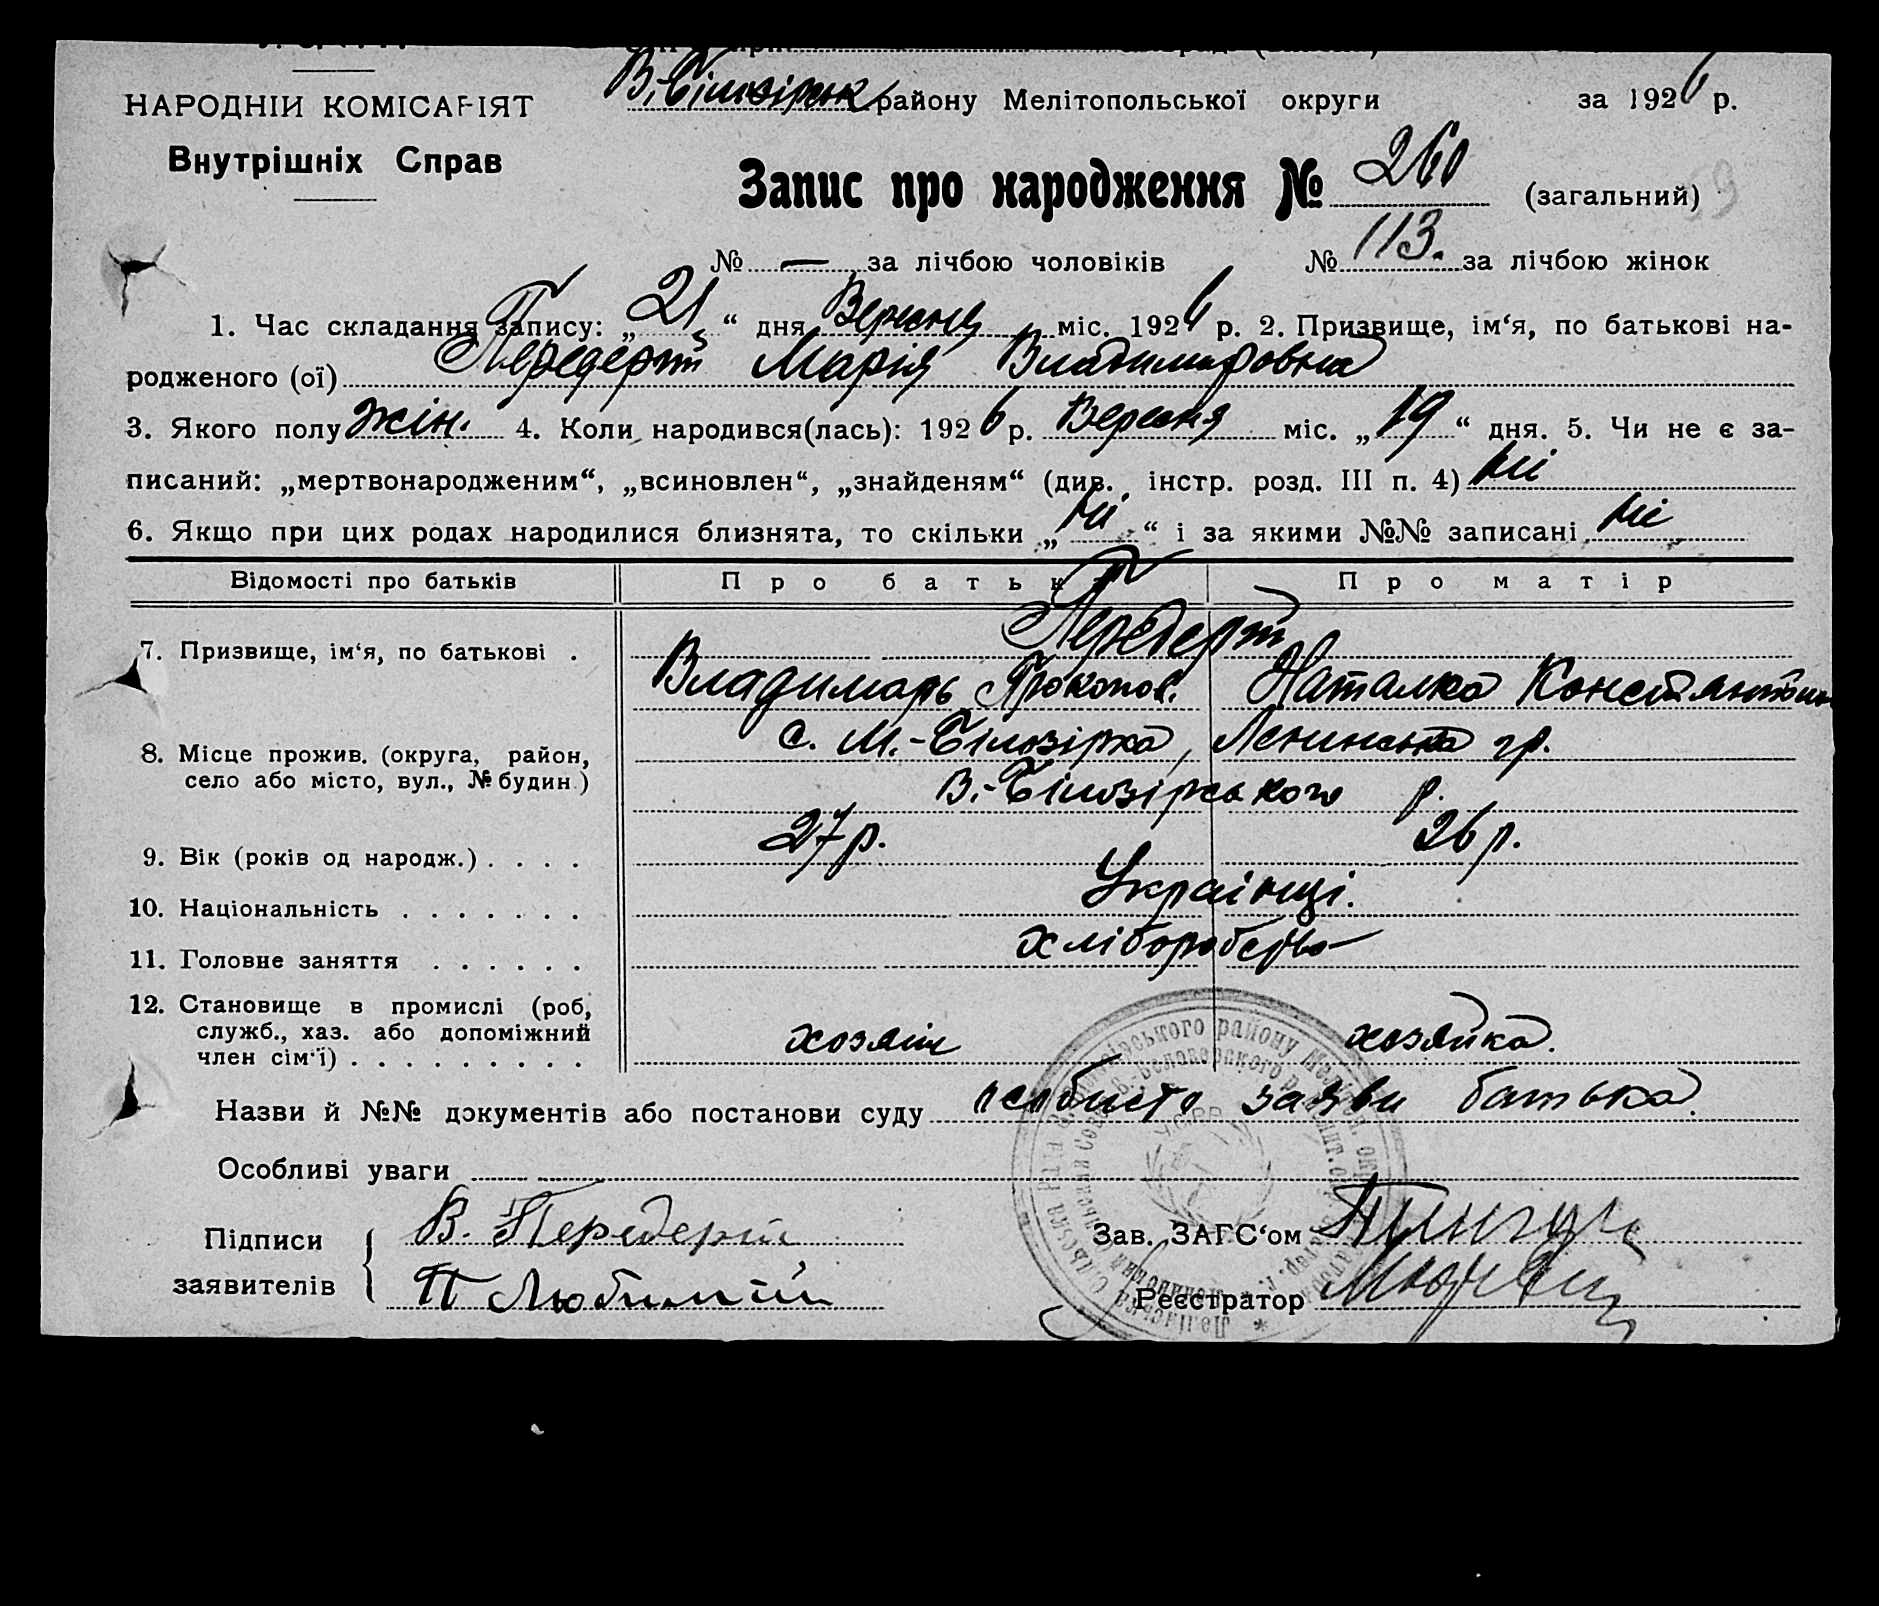 В.-Білозірськ району Мелітопольської округи за 1926 р.
НАРОДНІЙ КОМІСАРІЯТ
Внутрішніх Справ
Запис про народження № 260 (загальний) 59
№ — за лічбою чоловіків № 113. за лічбою жінок
1. Час складання запису: „21“ дня Вересня міс. 1926 р. 2. Призвище, ім‘я, по батькові на-
родженого (ої) Передерій Марія Владимировна
3. Якого полу жін. 4. Коли народився(лась): 1926 р. Вересня міс. „19“ дня. 5. Чи не є за-
писаний: „мертвонародженим“, „всиновлен“, „знайденям“ (див. інстр. розд. III п. 4) ні
6. Якщо при цих родах народилися близнята, то скільки „ні“ і за якими №№ записані ні
Відомості про батьків Про батька Про матір
7. Призвище, ім‘я, по батькові . Передерій
Владимирь Прокопов. Наталка Константин
8. Місце прожив. (округа, район, с. М.-Білозірка, Ленинська гр.
село або місто, вул., № будин.) В.-Білозірського р.
9. Вік (років од народж.) . . . . 27 р. 26 р.
10. Національність . . . . . . . Українці.
11. Головне заняття . . . . . . хліборобство
12. Становище в промислі (роб,
служб., хаз. або допоміжний хозяїн хозяйка.
член сім‘ї) . . . . . . . . .
Назви й №№ документів або постанови суду особисто заяви батька.
Особливі уваги
Підписи В. Передерій Зав. ЗАГС‘ом
заявителів П Любимий Реєстратор